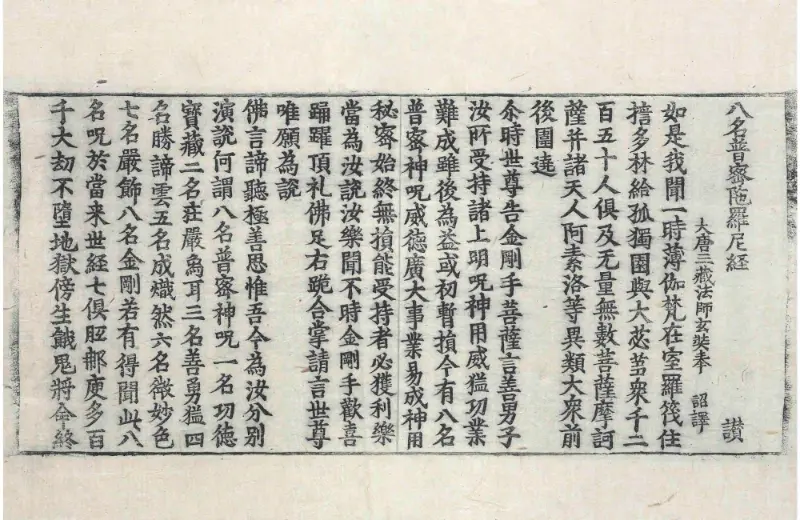 八名普密陁羅尼経 讃
大唐三藏法師玄奘奉 詔譯
如是我聞一時薄伽梵在室羅筏住
擔多林給孤獨園與大苾芻衆千二
百五十人俱及无量無數菩薩摩訶
薩并諸天人阿素洛等異類大衆前
後圍遶
尒時世尊告金剛手菩薩言善男子
汝所受持諸上明呪神用威猛功業
難成雖後為益或初暫損今有八名
普密神呪威德廣大事業易成神用
秘密始終無損能受持者必獲利樂
當為汝說汝樂聞不時金剛手歡喜
踊躍頂礼佛足右跪合掌請言世尊
唯願為說
佛言諦聽極善思惟吾今為汝分別
演說何謂八名普密神呪一名功德
寶藏二名莊嚴象耳三名善勇猛四
名勝諦雲五名成熾然六名微妙色
七名嚴飾八名金剛若有得聞此八
名呪於當来世経七俱胝那庾多百
千大劫不墮地獄傍生餓鬼將命終